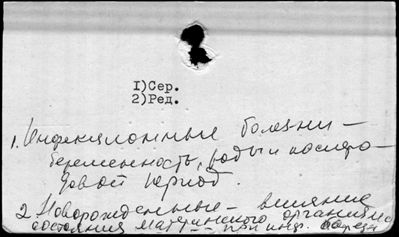 1)Сер.
2)Ред.
1. Инфекционные болезни –
беременность, роды и послеро-
довой период.
2. Новорожденные – влияние
состояния материнского организма
– при инф. болезн